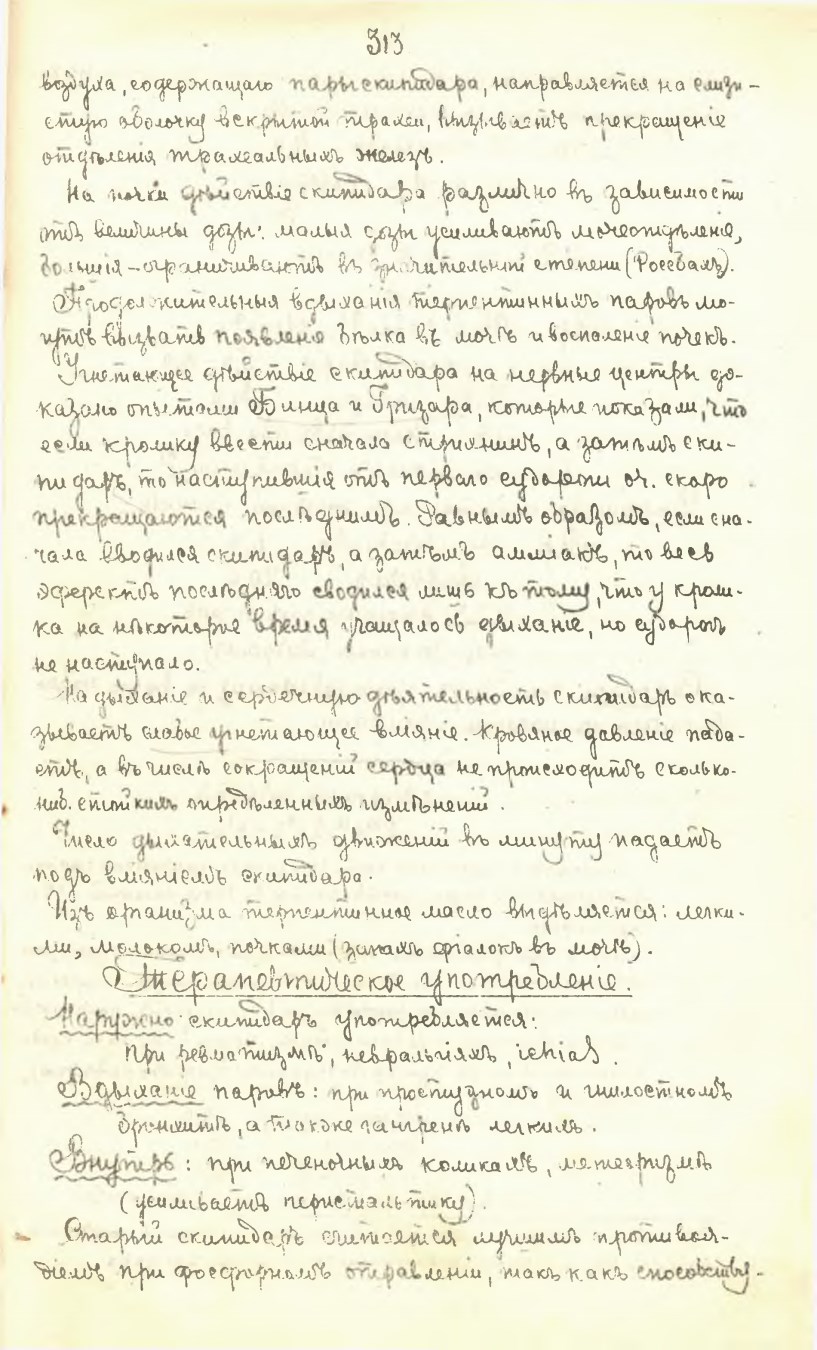 313
воздуха, содержащаго пары скипидара, направляется на слизи-
стую оболочку вскрытой трахеи, вызываетъ прекращеніе
отдѣленія трахеальныхъ железъ.
На почки дѣйствіе скипидара различно въ зависимости
отъ величины дозы: малыя дозы усиливаютъ мочеотдѣленіе,
большія – ограничиваютъ въ значительной степени (Россбахъ).
Продолжительныя вдыханія терпентинныхъ паровъ мо-
гутъ вызвать появленіе бѣлка въ мочѣ и воспаленіе почекъ.
Угнетающее дѣйствіе скипидара на нервные центры до-
казано опытами Бинца и Гризара, которые показали, что
если кролику ввести сначала стрихнинъ, а затѣмъ ски-
пидаръ, то наступившія отъ перваго судороги оч. скоро
прекращаются послѣднимъ. Равнымъ образомъ, если сна-
чала вводился скипидаръ, а затѣмъ амміакъ, то весь
эффектъ послѣдняго сводился лишь къ тому, что у кроли-
ка на нѣкоторое время учащалось дыханіе, но судорогъ
не наступало.
На дыханіе и сердечную дѣятельность скипидаръ ока-
зываетъ слабое угнетающее вліяніе. Кровяное давленіе пада-
етъ, а въ числѣ сокращеній сердца не происходитъ сколько-
ниб. стойкихъ опредѣленныхъ измѣненій.
Число дыхательныхъ движеній въ минуту падаетъ
подъ вліяніемъ скипидара.
Изъ организма терпентинное масло выдѣляется: легки-
ми, молокомъ, почками (запахъ фіалокъ въ мочѣ).
Терапевтическое употребленіе.
Наружно скипидаръ употребляется:
при ревматизмѣ, невральгіяхъ, ischias.
Вдыханіе паровъ: при простудномъ и гнилостномъ
бронхитѣ, а также гангренѣ легкихъ.
Внутрь: при печеночныхъ коликахъ, метеоризмѣ
(усиливаетъ перистальтику).
Старый скипидаръ считается лучшимъ противоя-
діемъ при фосфорномъ отравленіи, такъ какъ способству-